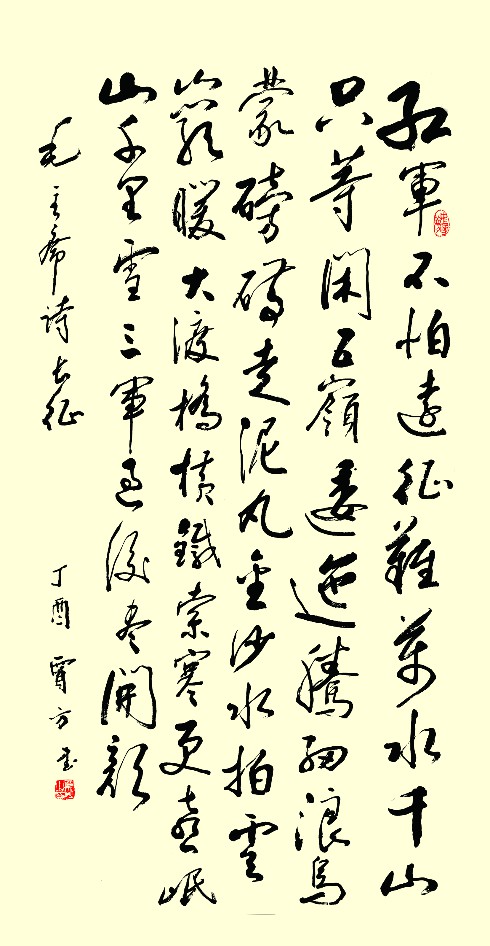 紅軍不怕遠征難萬水千山
只等閑五嶺逶迤騰細浪烏
蒙磅礴走泥丸金沙水拍雲
崖暖大渡橋橫鐵索寒更喜岷
山千里雪三軍過後盡開顏
毛主席诗长征
丁酉 方书